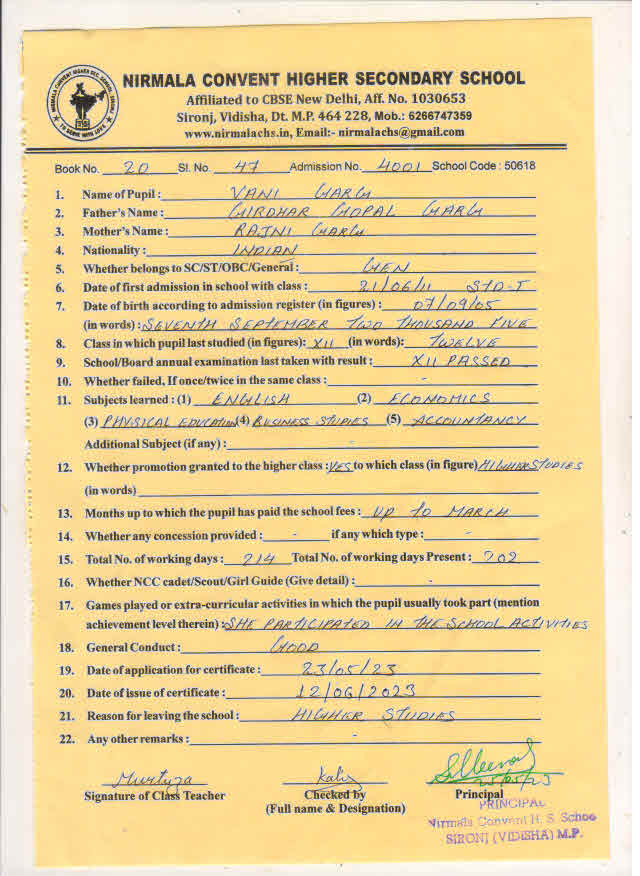 NIRMALA CONVENT HIGHER SEC. SCHOOL SIRONJ
TO SERVE WITH LOVE
NIRMALA CONVENT HIGHER SECONDARY SCHOOL
Affiliated to CBSE New Delhi, Aff. No. 1030653
Sironj, Vidisha, Dt. M.P. 464 228, Mob.: 6266747359
www.nirmalachs.in, Email:- nirmalachs@gmail.com
Book No. 20 Sl. No. 47 Admission No. 4001 School Code : 50618
1. Name of Pupil : VANI GARG
2. Father's Name : GIRDHAR GOPAL GARG
3. Mother's Name : RAJNI GARG
4. Nationality : INDIAN
5. Whether belongs to SC/ST/OBC/General : GEN
6. Date of first admission in school with class : 21/06/11 STD-I
7. Date of birth according to admission register (in figures) : 07/09/05
(in words) : SEVENTH SEPTEMBER TWO THOUSAND FIVE
8. Class in which pupil last studied (in figures): XII (in words): TWELVE
9. School/Board annual examination last taken with result : XII PASSED
10. Whether failed, If once/twice in the same class : -
11. Subjects learned : (1) ENGLISH (2) ECONOMICS
(3) PHYSICAL EDUCATION (4) BUSINESS STUDIES (5) ACCOUNTANCY
Additional Subject (if any) : -
12. Whether promotion granted to the higher class : YES to which class (in figure) HIGHER STUDIES
(in words)
13. Months up to which the pupil has paid the school fees : UP TO MARCH
14. Whether any concession provided : - if any which type : -
15. Total No. of working days : 214 Total No. of working days Present : 202
16. Whether NCC cadet/Scout/Girl Guide (Give detail) : -
17. Games played or extra-curricular activities in which the pupil usually took part (mention
achievement level therein) : SHE PARTICIPATED IN THE SCHOOL ACTIVITIES
18. General Conduct : GOOD
19. Date of application for certificate : 23/05/23
20. Date of issue of certificate : 12/06/2023
21. Reason for leaving the school : HIGHER STUDIES
22. Any other remarks : -
Murtuza
Signature of Class Teacher
Checked by
(Full name & Designation)
25/05/23
Principal
PRINCIPAL
Nirmala Convent H. S. Schoo
SIRONJ (VIDISHA) M.P.